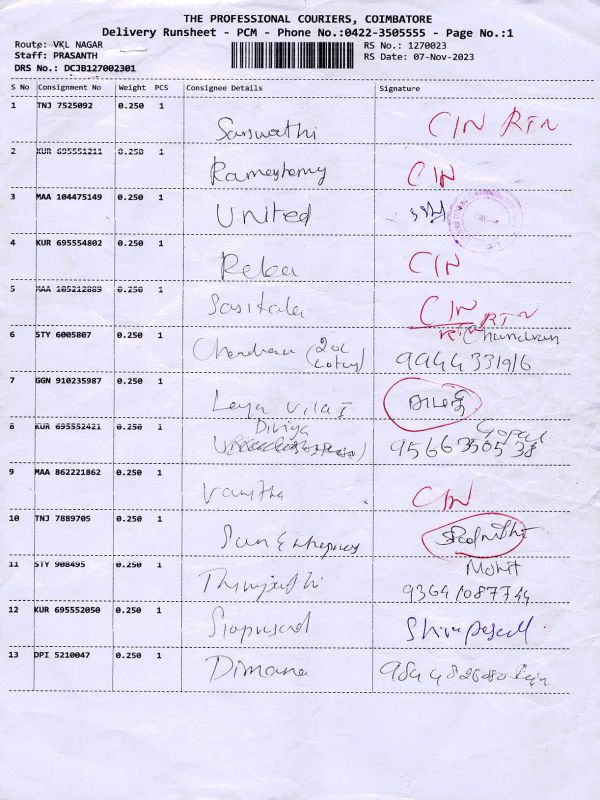 THE PROFESSIONAL COURIERS, COIMBATORE
Delivery Runsheet - PCM - Phone No.:0422-3505555 - Page No.:1
Route: VKL NAGAR RS No.: 1270023
Staff: PRASANTH RS Date: 07-Nov-2023
DRS No.: DCJB127002301
S No Consignment No Weight PCS Consignee Details Signature
1 TNJ 7525092 0.250 1
Sarswathi CIN RTN
2 KUR 695551211 0.250 1
CIN
3 MAA 104475149 0.250 1
United
4 KUR 695554802 0.250 1
Reba CIN
5 MAA 105212889 0.250 1
Sasikala CIN RTN
6 STY 6005807 0.250 1 Chandran
Chandran (204 Lotus) 9944331916
7 GGN 910235987 0.250 1
Leya Villa
8 KUR 695552421 0.250 1 Diviya Gopal
9566350538
9 MAA 862221862 0.250 1
Vanitha CIN
10 TNJ 7889705 0.250 1
Sun
11 STY 908495 0.250 1 Mohit
9364108774
12 KUR 695552050 0.250 1
13 DPI 5210047 0.250 1
Dimana